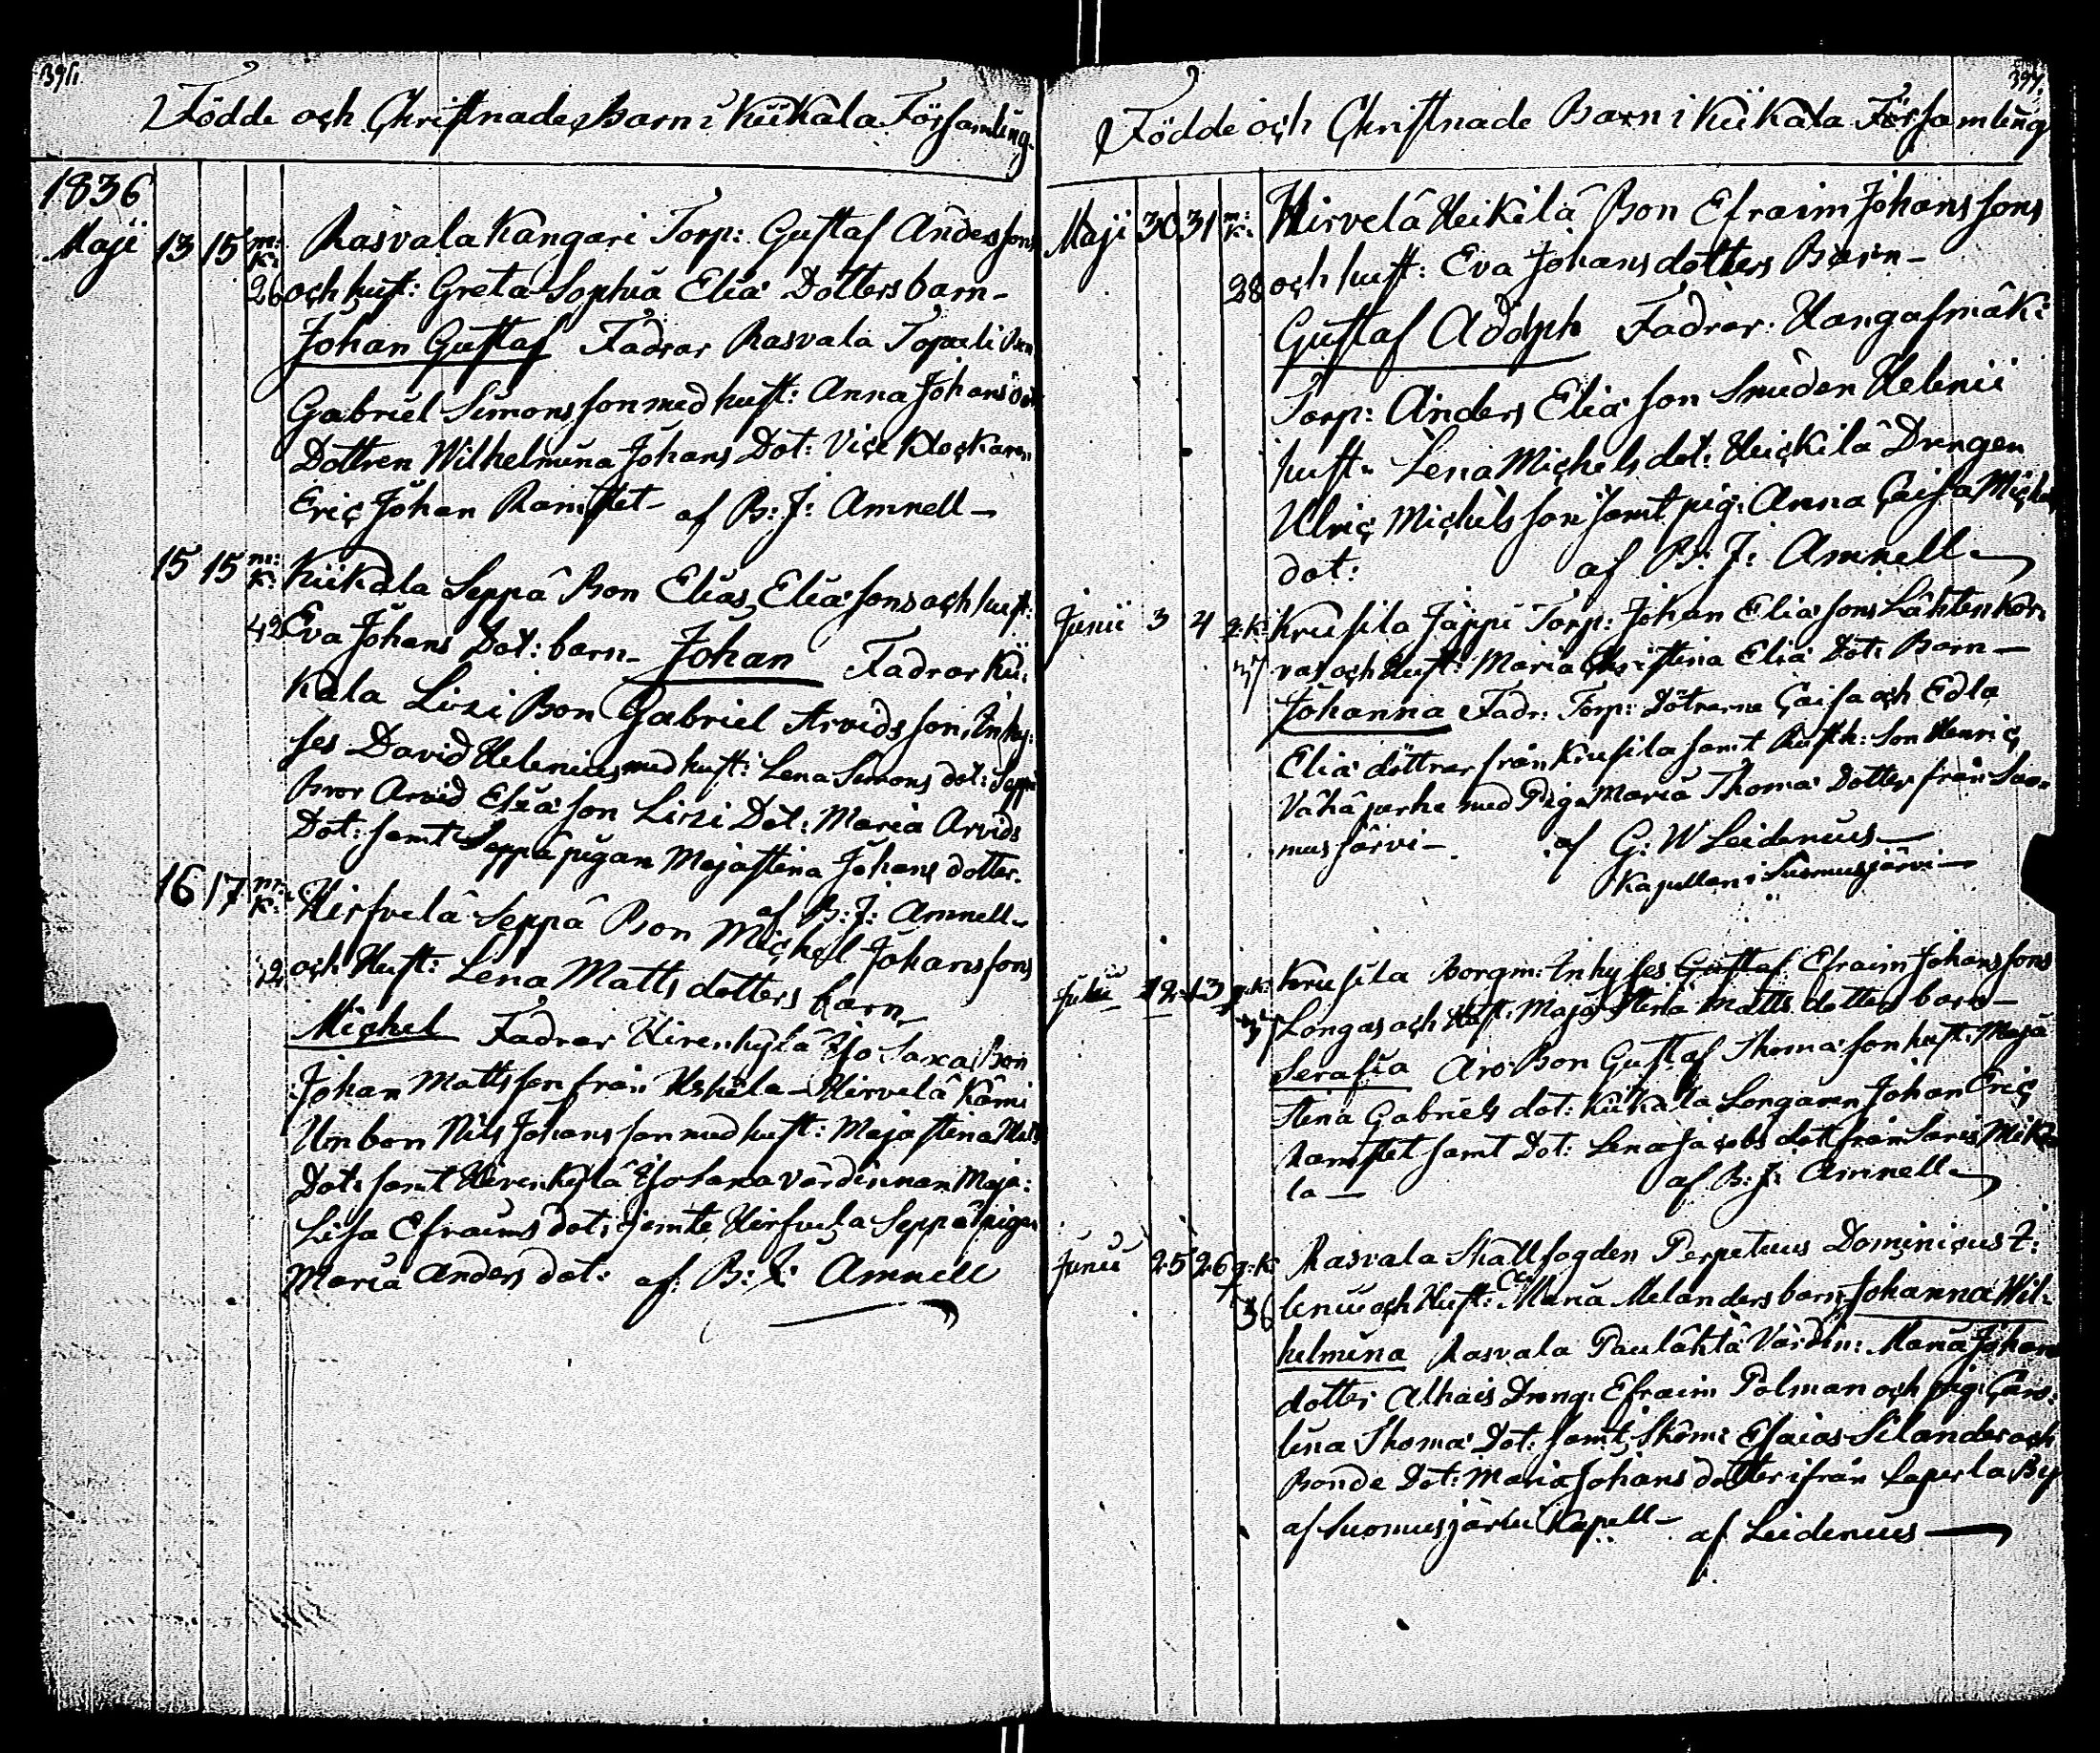 Födde och Christnade Barn i Kiikala Församling.
1836
Maji 13 15 m: k: Rasvala Kangari Torp: Gustaf Anderssons
26 och hust: Greta Sophia Elia Dotters barn-
Johan Gustaf Fadrar Rasvala Topeeli Bon
Gabriel Simonsson med hust: Anna Johans dot:
Dottren Wilhelmina Johans Dot: Viçe Kloçkaren
Eriç Johan Ramstet- af B: J: Amnell-
15 15 m: k: Kiikala Seppä Bon Elias Elia sons och hust:
42 Eva Johans Dot: barn- Johan Fadrar Kii:
kala Lizi Bon Gabriel Arvidsson, Inhy:
ses David Helenius med hust: Lena Simons dot: Seppä
Bror Arvid Elia son Lizi Dot: Maria Arvids
Dot: samt Seppä pigan Majastina Johans dotter.
af B: J: Amnell-
16 17 m: k: Hirfvelä Seppä Bon Miçhel Johanssons
42 och Hust: Lena Matts dotters barn
Miçhel Fadrar Hirenkylä Yso Saxa Bon
Johan Mattsson från Uskela- Hirvelä Kämi
Um bon Nils Johansson med hust: Majastina
Dot: samt Hirenkylä Yso Saxa värdinnan Maja:
Lisa Efraims dot: jemte Hirfvela Seppä pigan
Maria Anders dot: af: B: J: Amnell
Födde och Christnade Barn i Kiikala Församling
Maji 30 31 m: k: Hirvelä Heikilä Bon Efraim Johanssons
28 och hust: Eva Johans dotters Barn-
Gustaf Adolph Fadrar: Hangasmäki
Torp: Anders Elia son Smeden Helenii
hust: Lena Miçhels dot: Heiçkilä Drengen
Ulriç Miçhels son samt pig: Anna Çaisa Miçhels
dot: af B: J: Amnell
Junii 3 4 q: k: Kruusila Jäppi Torp: Johan Elia sons Lähtenkor:
37 vas och Hust: Maria Christina Elia Dot: Barn-
Johanna Fadr: Torp: Dötrarna Çaisa och Edla
Elia döttrar från Kruusila samt Rusth: Son Henriç
Vähäperhe med Piga Maria Thoma Dotter från Suo-
musjärvi- af G: W Leidenius-
Kapellan i Suomusjärvi-
Junii 12 13 q: k: Kruusila Borgm: Inhyses Gustaf Efraim Johanssons
Longas och Hust: Majastina Matts dotters barn-
Serafia Aro Bon Gustaf Thoma son hust: Maja
Stina Gabriels dot: Kiikala Longaren Johan Eriç
Ramstet samt Dot: Lena Jaçobs dot från Saris Mikko
la- af B: J: Amnell
Junii 25 26 q: k: Rasvala Skallfogden Perpetuus Dominiçus Z:
36 lenii och Hust: Maria Melanders barn Johanna Wil:
helmina Rasvala Paulähtä Värdin: Maria Johans
dotter Alhais Dreng: Efraim Polman och pig: Çaro:
lina Thoma Dot: samt Skom: Esaias Silander och
Bonde Dot: Maria Johans dotter ifrån Laperla By
af Suomusjärvi Kapell- af Leidenius